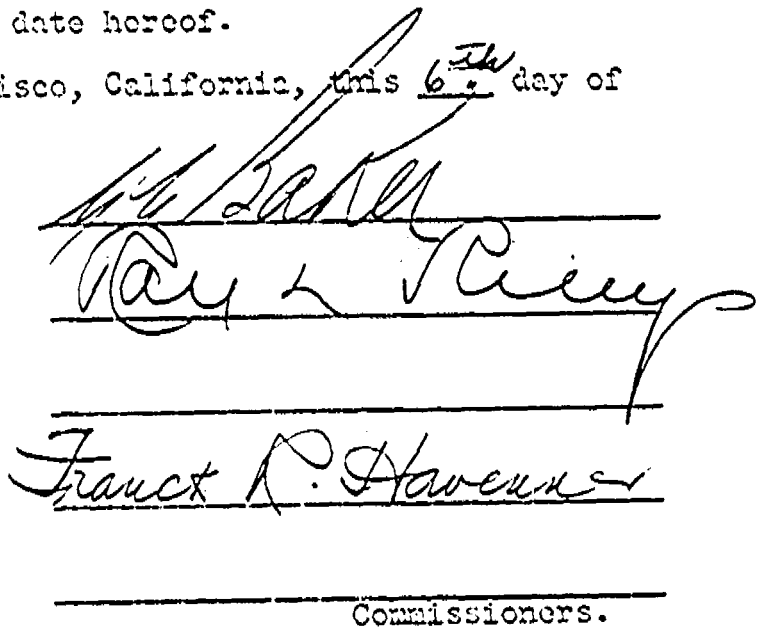 date hereof.
isco, California, this 6th day of
Baker
Ray L Riley
Franck R. Havenner
Commissioners.